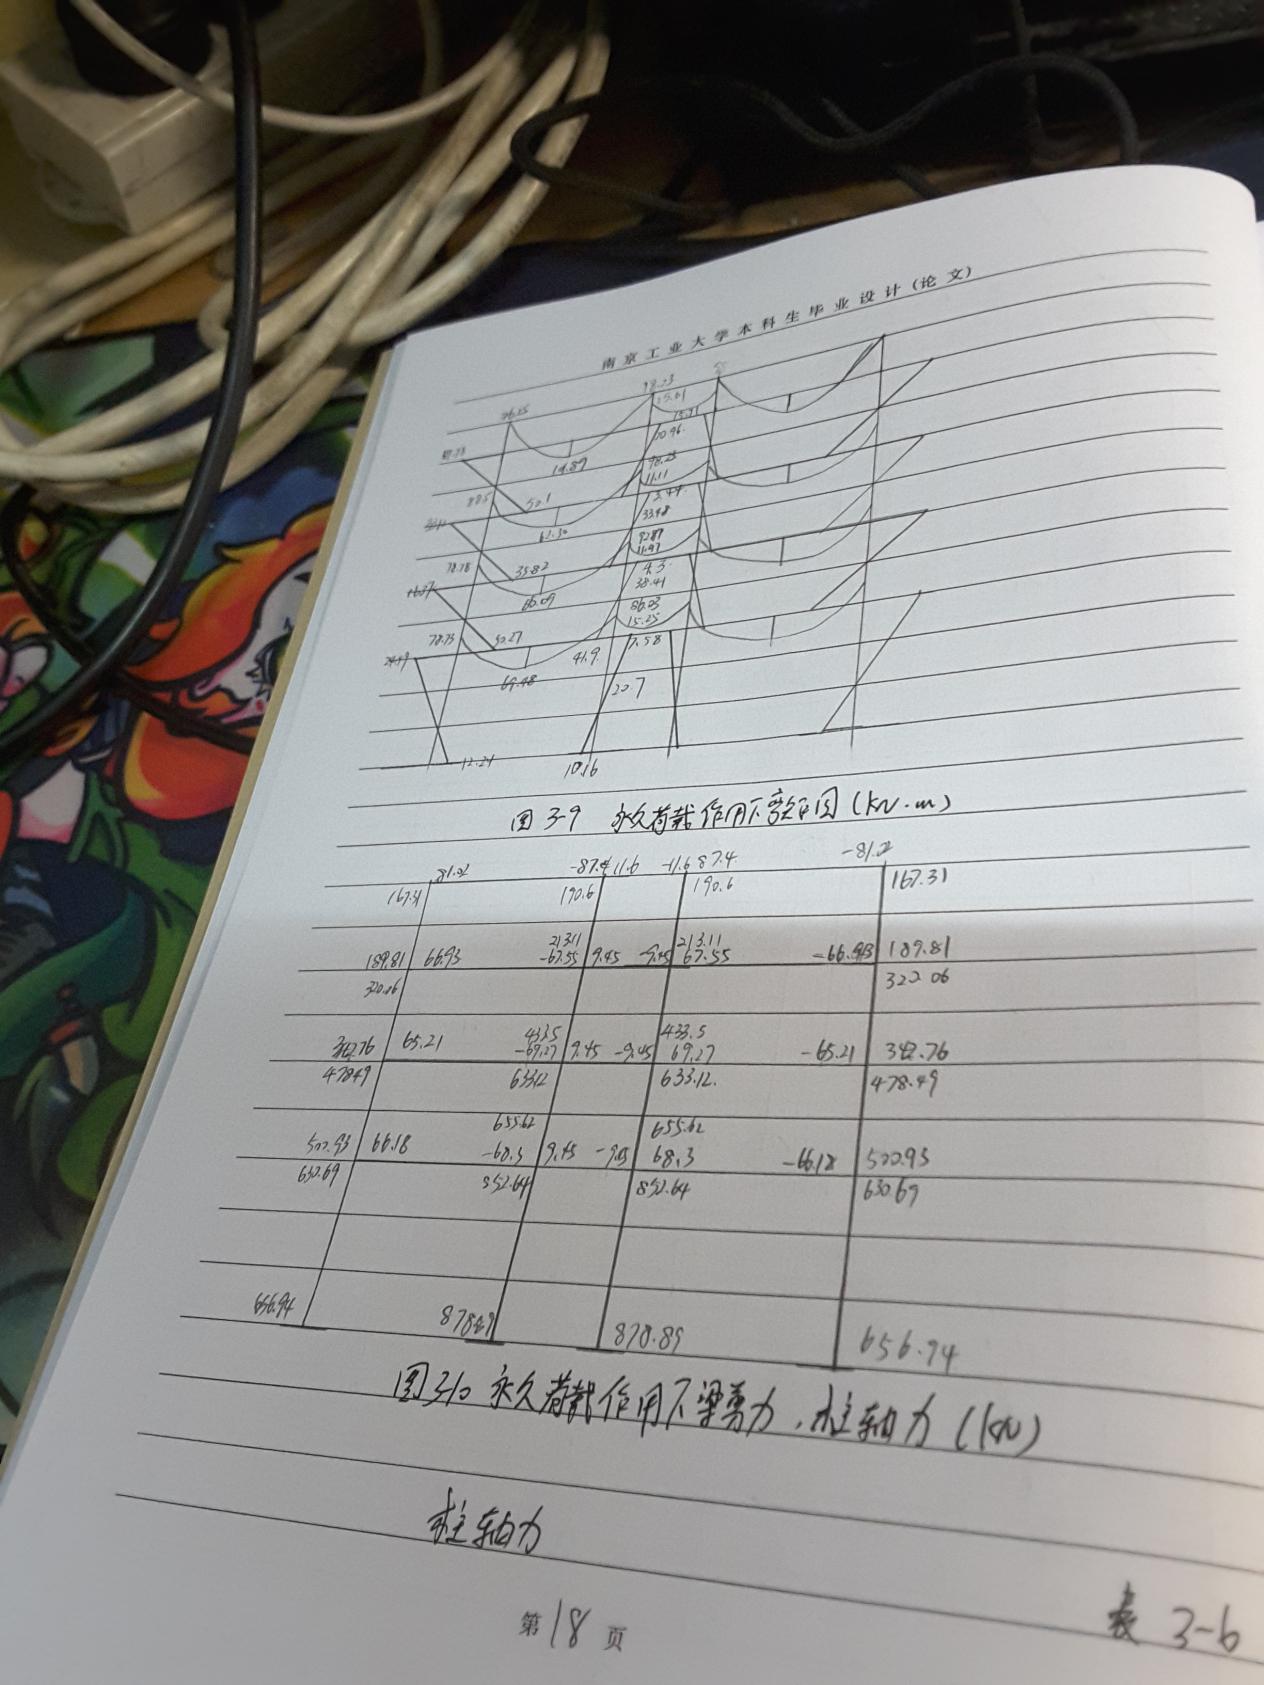 南京工业大学本科生毕业设计(论文)
98.23
15.61
14.89
20.96
98.23
11.11
50.1
62.30
33.48
92.87
11.97
78.18
35.82
4.3
38.41
86.09
86.03
15.25
78.73
50.27
41.9
7.58
69.48
20.7
12.24
10.16
图 3-9 永久荷载作用下弯矩图(kN·m)
81.02 -87.4 11.6 -11.6 87.4 -81.2
167.31 190.6 190.6 167.31
213.11 213.11
189.81 66.93 -67.55 9.45 -9.45 67.55 189.81
322.06
433.5 433.5
342.76 65.21 -69.27 9.45 -9.45 69.27 -65.21 342.76
478.49 633.12 633.12. 478.49
655.62 655.62
500.93 66.18 -68.3 9.45 68.3 -66.18 500.93
630.69 852.64 852.64 630.69
656.94 878.89 656.94
图3-10 永久荷载作用下梁剪力,柱轴力(kN)
柱轴力
表 3-6
第 18 页